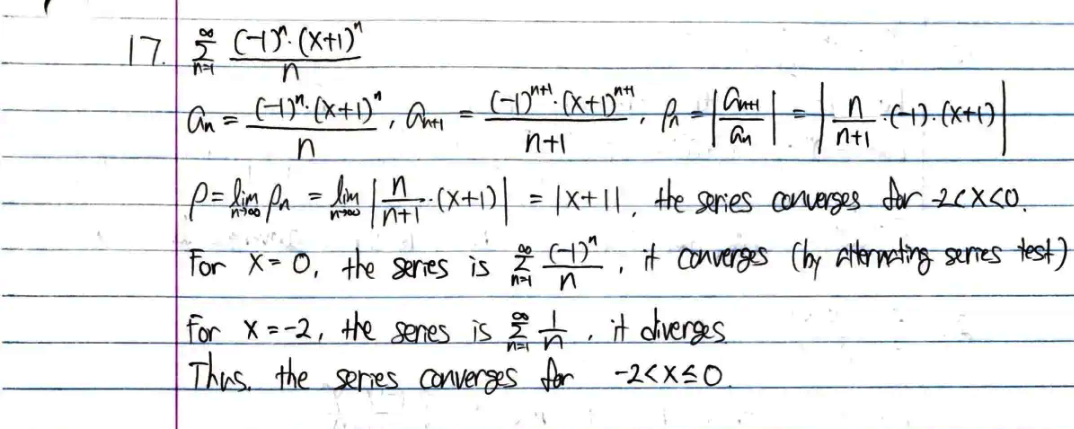 17. \sum_{n=1}^{\infty} \frac{(-1)^n \cdot (x+1)^n}{n}
a_n = \frac{(-1)^n \cdot (x+1)^n}{n}, a_{n+1} = \frac{(-1)^{n+1} \cdot (x+1)^{n+1}}{n+1}, \rho_n = \left| \frac{a_{n+1}}{a_n} \right| = \left| \frac{n}{n+1} \cdot (-1) \cdot (x+1) \right|
\rho = \lim_{n \to \infty} \rho_n = \lim_{n \to \infty} \left| \frac{n}{n+1} \cdot (x+1) \right| = |x+1|, the series converges for -2<x<0.
For x=0, the series is \sum_{n=1}^{\infty} \frac{(-1)^n}{n}, it converges (by alternating series test)
For x=-2, the series is \sum_{n=1}^{\infty} \frac{1}{n}, it diverges
Thus, the series converges for -2<x≤0.